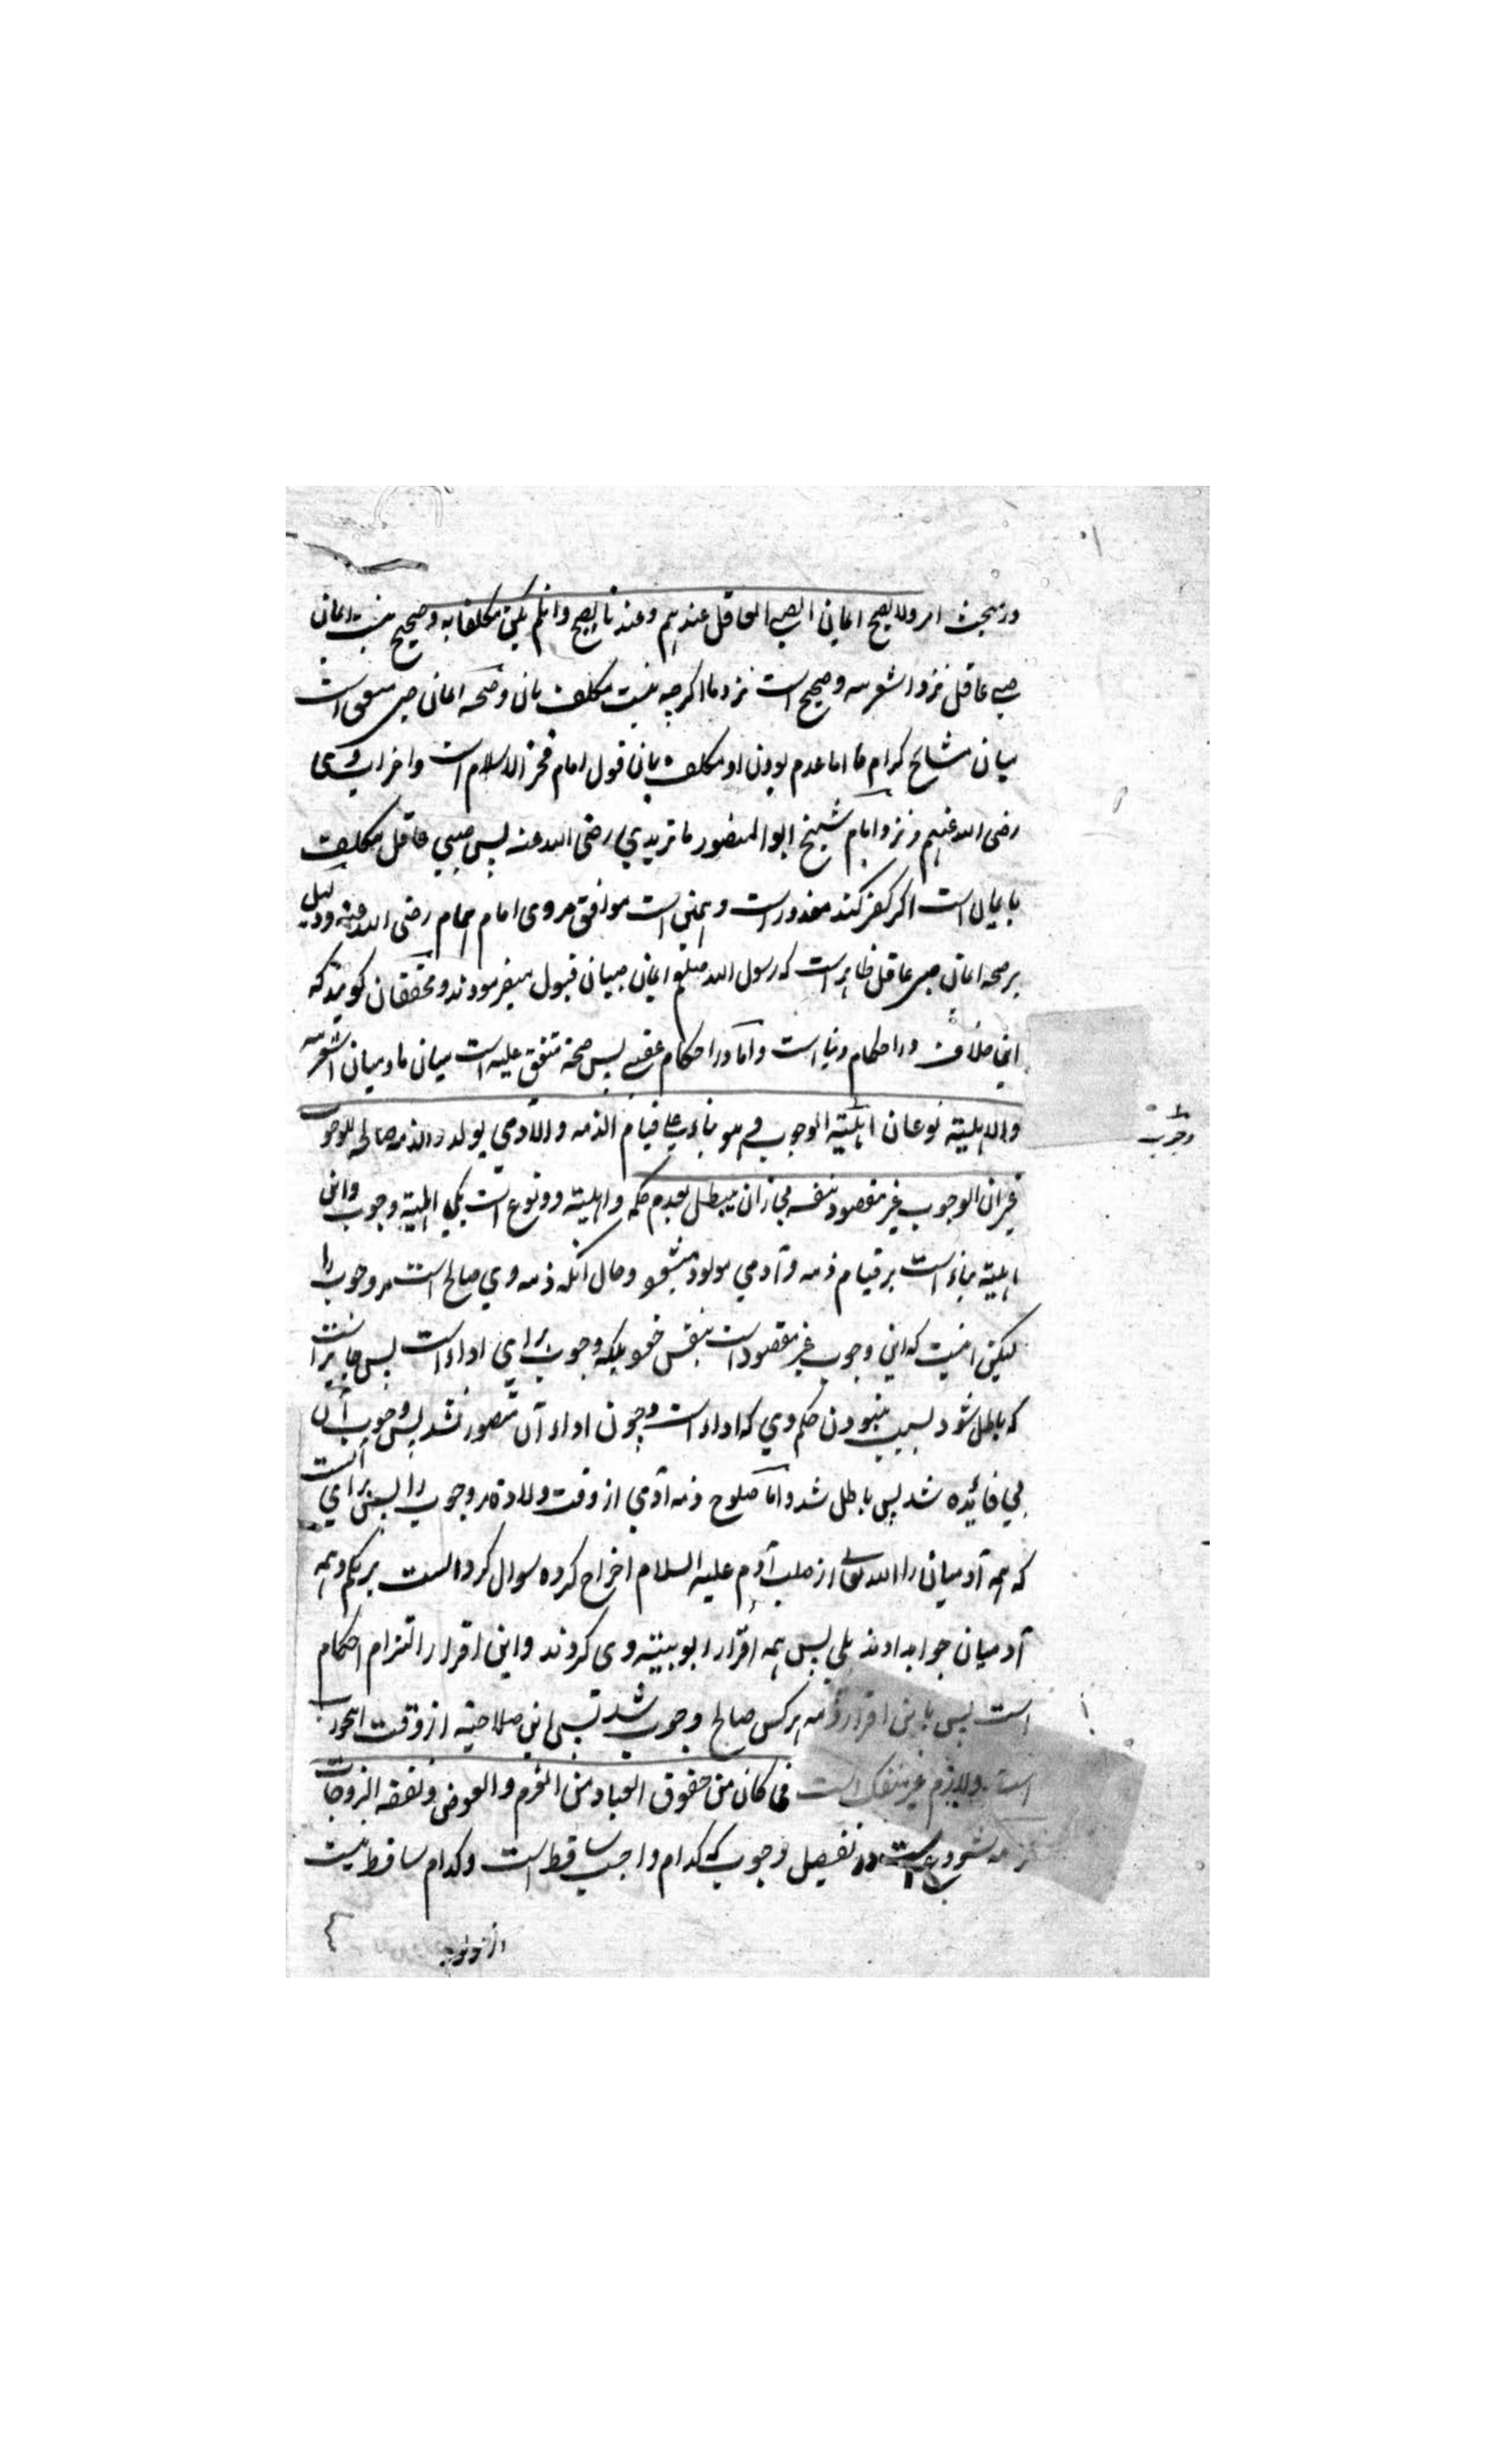 در بحث امر ولا یصح ایمان الصبی العاقل عندهم وعندنا یصح وان لم یکن مکلفا به وصحیح نیست ایمان
صبی عاقل نزد اشعریه وصحیح است نزد ما اگرچه نیست مکلف بآن وصحة ایمان صبی متفق است
میان مشائخ کرام ما اما عدم بودن او مکلف بآن قول امام فخر الاسلام است و
رضی الله عنهم ونزد امام شیخ ابو المنصور ماتریدی رضی الله عنه پس صبی عاقل مکلف
بایمان است اگر کفر کند معذور است وهمین است موافق مروی امام همام رضی الله عنه ودلیل
بر صحة ایمان صبی عاقل ظاهر است که رسول الله صلعم ایمان صبیان قبول میفرمودند ومحققان گویند که
این خلاف در احکام دنیا است واما در احکام عقبی پس صحة متفق علیه است میان ما ومیان اشعریه
والاهلیة نوعان اهلیة الوجوب وهو بناء علی قیام الذمه والآدمی یولد والذمه صالحة للوجوب
غیر ان الوجوب غیر مقصود بنفسه فجاز ان یبطل بعدم حکمه واهلیة دو نوع است یکی اهلیة وجوب واین
اهلیة بناء است بر قیام ذمه وآدمی مولود میشود وحال آنکه ذمه وی صالح است مر وجوب را
لیکن اینست که این وجوب غیر مقصود است بنفس خود بلکه وجوب برای اداء است پس جایز است
که باطل شود بسبب نبودن حکم وی که اداء است وچون اداء آن متصور نشد پس وجوب آن
بی فائده شد پس باطل شد واما صلوح ذمه آدمی از وقت ولادة مر وجوب را پس برای آنست
که همه آدمیان را الله تعالی از صلب آدم علیه السلام اخراج کرده سوال کرد الست بربکم وهمه
آدمیان جواب دادند بلی پس همه اقرار ربوبیته وی کردند واین اقرار التزام احکام
است پس باین اقرار ذمه هر کس صالح وجوب شد پس این صلاحیته از وقت
است ولازم غیر منفک است فما کان من حقوق العباد من الغرم والعوض ونفقة الزوجات
شروع است در تفصیل وجوب که کدام واجب ساقط است وکدام ساقط نیست
وجوب